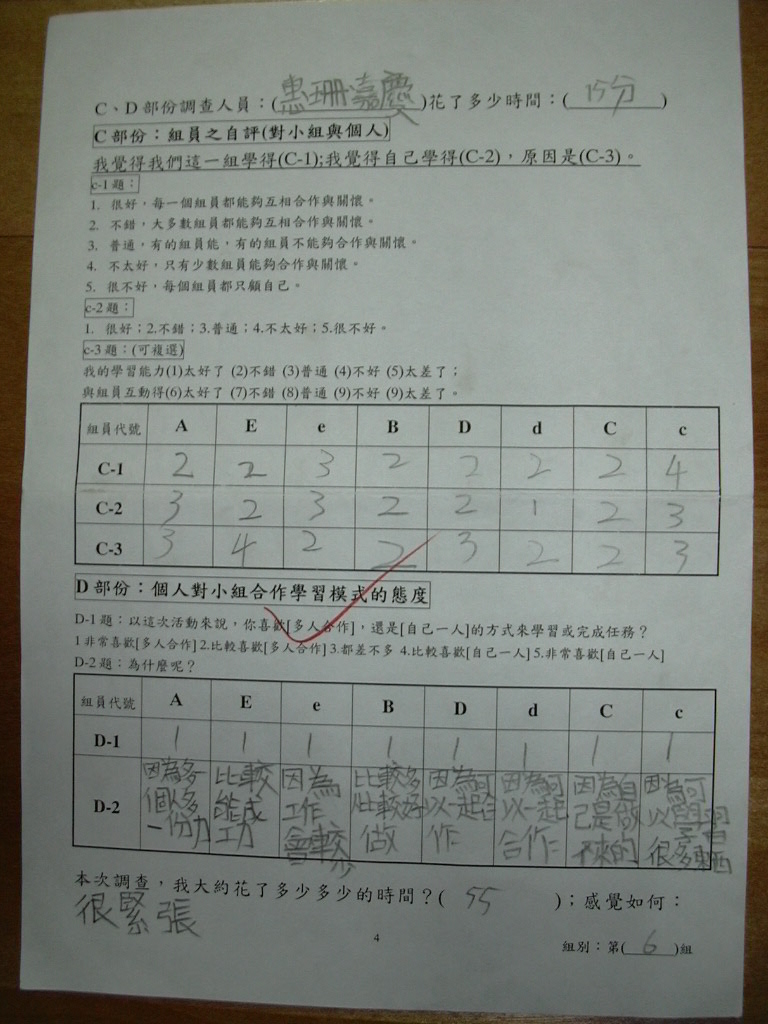 C、D 部份調查人員：(惠珊、嘉慶)花了多少時間：(15分)
C 部份：組員之自評(對小組與個人)
我覺得我們這一組學得(C-1);我覺得自己學得(C-2)，原因是(C-3)。
c-1 題：
1. 很好，每一個組員都能夠互相合作與關懷。
2. 不錯，大多數組員都能夠互相合作與關懷。
3. 普通，有的組員能，有的組員不能夠合作與關懷。
4. 不太好，只有少數組員能夠合作與關懷。
5. 很不好，每個組員都只顧自己。
c-2 題：
1. 很好；2.不錯；3.普通；4.不太好；5.很不好。
c-3 題：(可複選)
我的學習能力(1)太好了 (2)不錯 (3)普通 (4)不好 (5)太差了；
與組員互動得(6)太好了 (7)不錯 (8)普通 (9)不好 (9)太差了。
組員代號 A E e B D d C c
C-1 2 2 3 2 2 2 2 4
C-2 3 2 3 2 2 1 2 3
C-3 3 4 2 2 3 2 2 3
D 部份：個人對小組合作學習模式的態度
D-1 題：以這次活動來說，你喜歡[多人合作]，還是[自己一人]的方式來學習或完成任務？
1 非常喜歡[多人合作] 2.比較喜歡[多人合作] 3.都差不多 4.比較喜歡[自己一人] 5.非常喜歡[自己一人]
D-2 題：為什麼呢？
組員代號 A E e B D d C c
D-1 1 1 1 1 1 1 1 1
D-2 因為多個人多一份力 比較能成功 因為工作會較少 比較多人比較好做 因為可以一起合作 因為可以一起合作 因為自己是做不來的 因為可以學習很多東西
本次調查，我大約花了多少多少的時間？( 55 )；感覺如何：
很緊張
4
組別：第(6)組